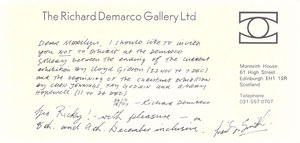 The Richard Demarco Gallery Ltd
Monteith House
61 High Street
Edinburgh EH1 1SR
Scotland
Telephone
031-557 0707
I should like to invite
you NOT to exhibit at the Demarco
Gallery between the ending of the current
exhibition by Lloyd Gibson (22 Nov to 7 Dec)
and the beginning of the Christmas exhibition
by Chris Jennings, Fay Godwin and
(11 to 24 Dec)
— Richard Demarco
Yes Ricky! - with pleasure - on
8th. and 9th December inclusive.